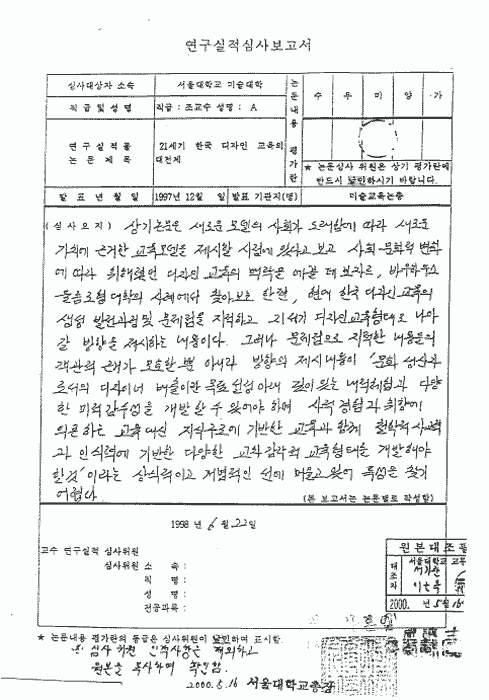 연구실적심사보고서
심사대상자 소속 서울대학교 미술대학
직급 및 성명 직급 : 조교수 성명 : A
논문내용 평가란
수 우 미 양 가
연구실적물
논문제목
21세기 한국 디자인 교육의
대전제
★ 논문심사 위원은 상기 평가란에
반드시 날인하시기 바랍니다.
발표년월일 1997년 12월 일 발표 기관지(명) 미술교육논총
(심사요지) 상기논문은 새로운 모델의 사회가 도래함에 따라 새로운
가치에 근거한 교육모델을 제시할 시점에 있다고 보고 사회·문화적 변화
에 따라 위해했던 디자인 교육의 맥락을 바이마르, 바우하우스
울름조형대학의 사례에서 찾아보는 한편, 현대 한국디자인교육의
생성 발전과정 및 문제점을 지적하고 21세기 디자인교육형태로 나아
갈 방향을 제시하는 내용이다. 그러나 문제점으로 지적한 내용들의
객관적 근거가 모호할 뿐 아니라 방향의 제시내용이 문화 생산자
로서의 디자이너 배출이란 목표설정아래 깊이있는 내적체험과 다양
한 미적감수성을 개발할 수 있어야 하며 시각 경험과 취향에
의존하는 교육대신 지식구조에 기반한 교육과 함께 철학적 사고력
과 인식력에 기반한 다양한 교차감각적 교육형태를 개발해야
할것"이라는 상식적이고 개별적인 선에 머물고 있어 특성을 찾기
어렵다.
(본 보고서는 논문별로 작성함)
1998년 6월 22일
교수 연구실적 심사위원
심사위원 소 속 :
직 명 :
성 명 :
전공과목 :
원본대조필
대조자
서울대학교 교무
2000. 년 5월 16
★ 논문내용 평가란의 등급은 심사위원이 날인하여 표시함.
심사위원 인적사항은 제외하고
원본을 복사하여 확인함.
2000.5.16 서울대학교총장